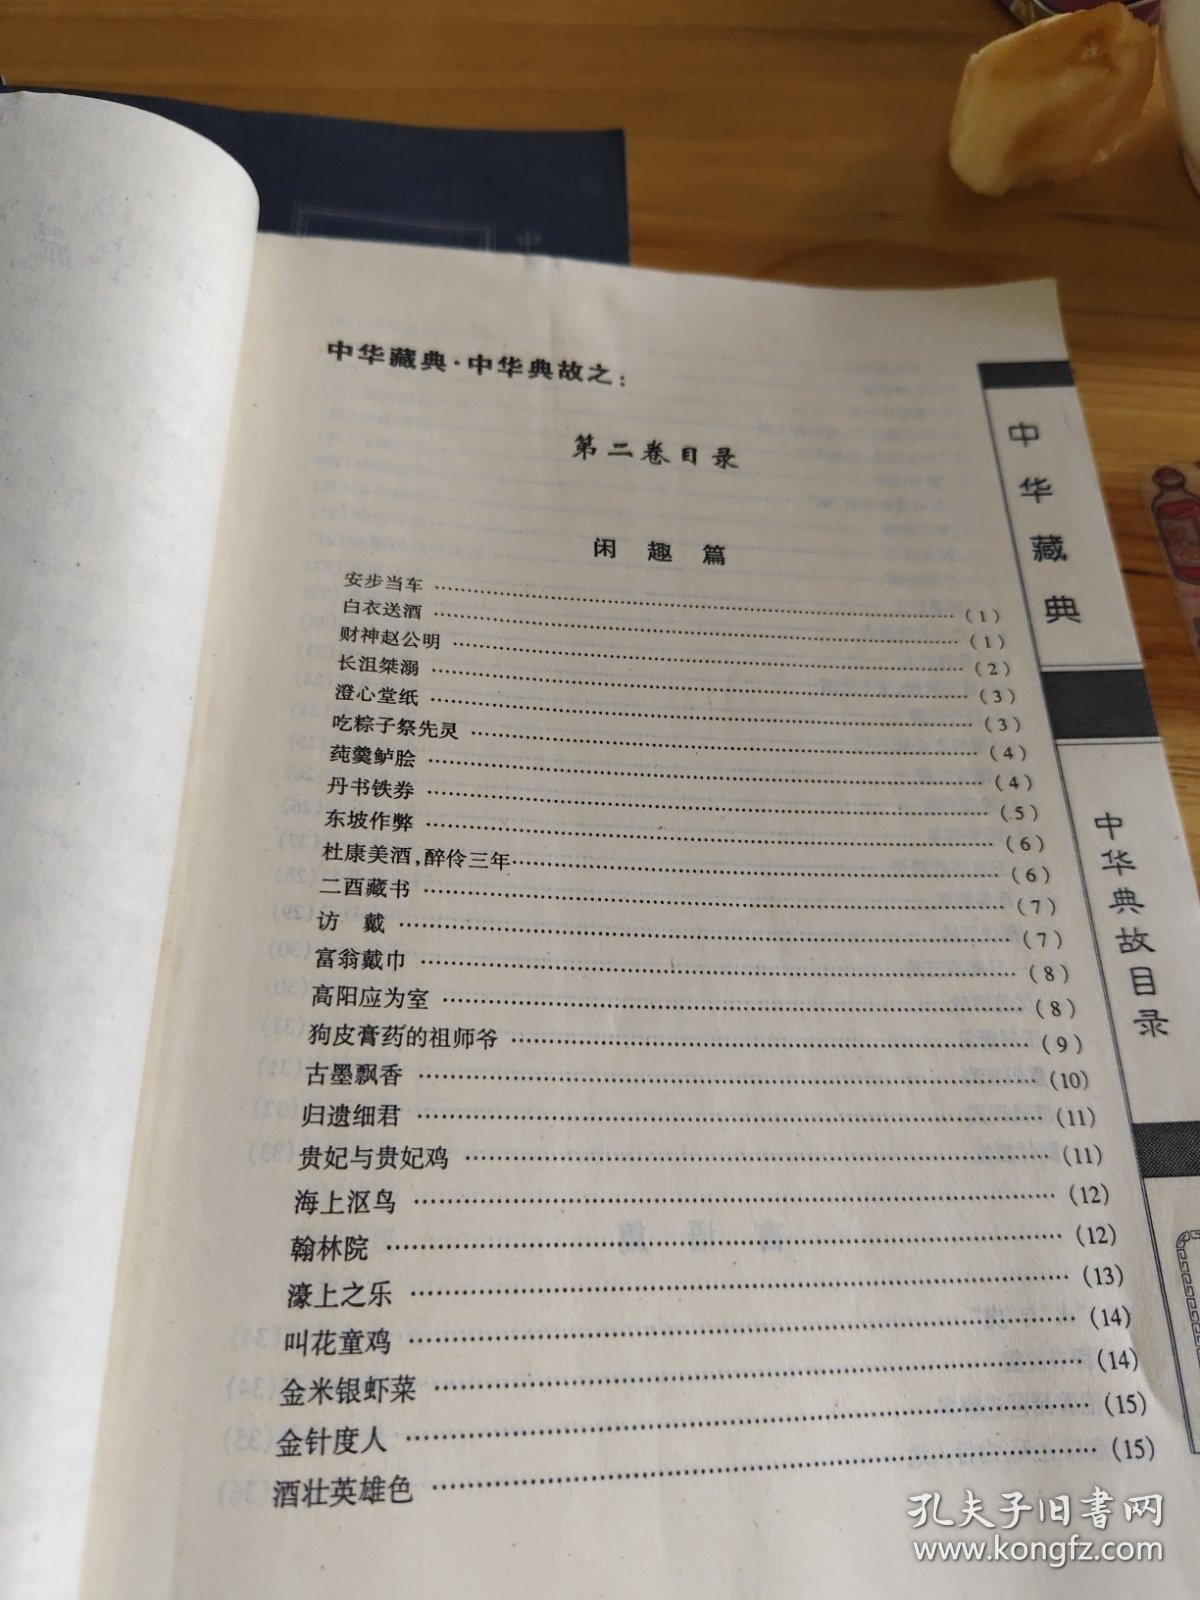 中华藏典·中华典故之：
第二卷目录
闲趣篇
安步当车 (1)
白衣送酒 (1)
财神赵公明 (2)
长沮桀溺 (3)
澄心堂纸 (3)
吃粽子祭先灵 (4)
莼羹鲈脍 (4)
丹书铁券 (5)
东坡作弊 (6)
杜康美酒,醉伶三年 (6)
二酉藏书 (7)
访 戴 (7)
富翁戴巾 (8)
高阳应为室 (8)
狗皮膏药的祖师爷 (9)
古墨飘香 (10)
归遗细君 (11)
贵妃与贵妃鸡 (11)
海上沤鸟 (12)
翰林院 (12)
濠上之乐 (13)
叫花童鸡 (14)
金米银虾菜 (14)
金针度人 (15)
酒壮英雄色 (15)
中华藏典
中华典故目录
孔夫子旧书网
www.kongfz.com